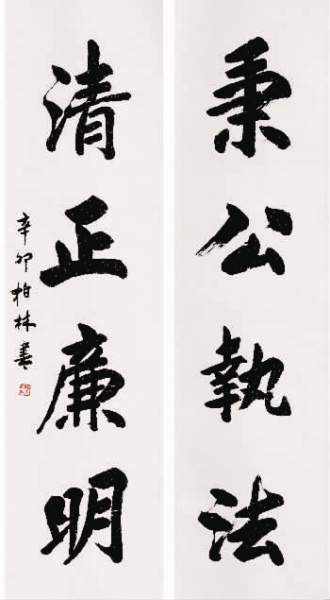 秉公執法
清正廉明
辛卯柏林書